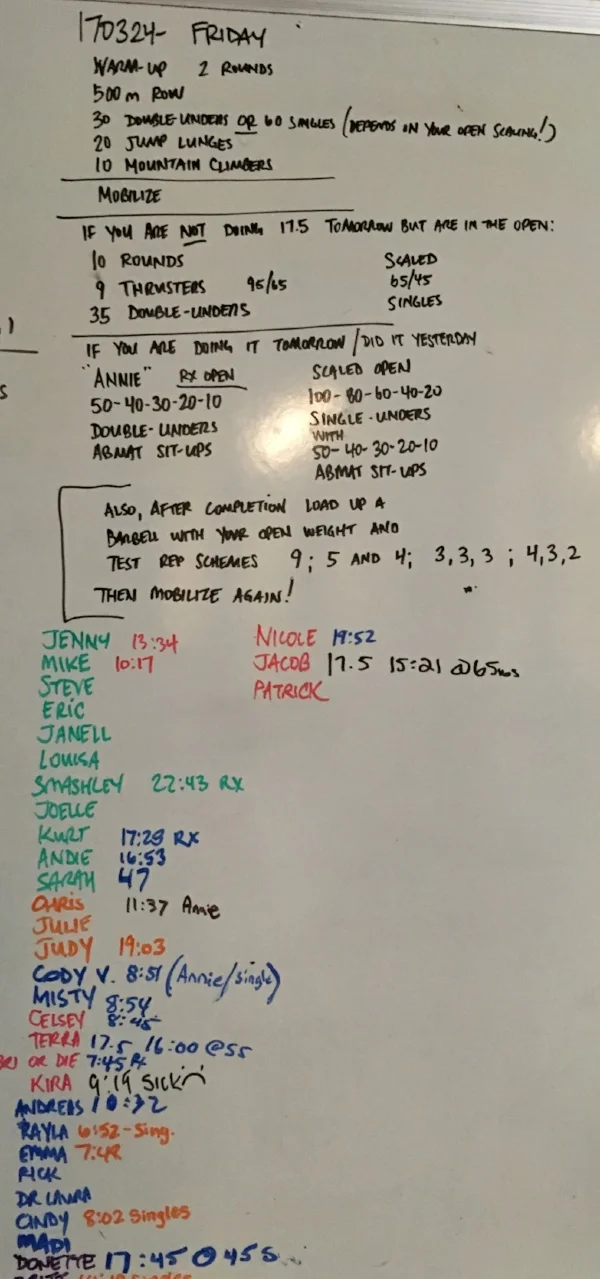 170324- FRIDAY
WARM-UP 2 ROUNDS
500m ROW
30 DOUBLE-UNDERS OR 60 SINGLES (DEPENDS ON YOUR OPEN SCALING!)
20 JUMP LUNGES
10 MOUNTAIN CLIMBERS
MOBILIZE
IF YOU ARE NOT DOING 17.5 TOMORROW BUT ARE IN THE OPEN:
10 ROUNDS SCALED
9 THRUSTERS 95/65 65/45
35 DOUBLE-UNDERS SINGLES
IF YOU ARE DOING IT TOMORROW / DID IT YESTERDAY
"ANNIE" RX OPEN
50-40-30-20-10
DOUBLE-UNDERS
ABMAT SIT-UPS
SCALED OPEN
100-80-60-40-20
SINGLE-UNDERS
WITH
50-40-30-20-10
ABMAT SIT-UPS
ALSO, AFTER COMPLETION LOAD UP A
BARBELL WITH YOUR OPEN WEIGHT AND
TEST REP SCHEMES 9; 5 AND 4; 3,3,3 ; 4,3,2
THEN MOBILIZE AGAIN!
JENNY 13:34
MIKE 10:17
STEVE
ERIC
JANELL
LOUISA
SMASHLEY 22:43 RX
JOELLE
KURT 17:28 RX
ANDIE 16:53
SARAH 47
CHRIS 11:37 Annie
JULIE
JUDY 19:03
CODY V. 8:51 (Annie/single)
MISTY 8:54
CELSEY 8:45
TERRA 17.5 16:00 @55
OR DIE 7:45 Rx
KIRA 9:19 SICK
ANDREAS 10:32
KAYLA 6:52-Sing.
EMMA 7:48
RICK
DR LAURA
CINDY 8:02 Singles
MADI
DONETTE 17:45 @ 45s
NICOLE 19:52
JACOB 17.5 15:21 @65lbs
PATRICK